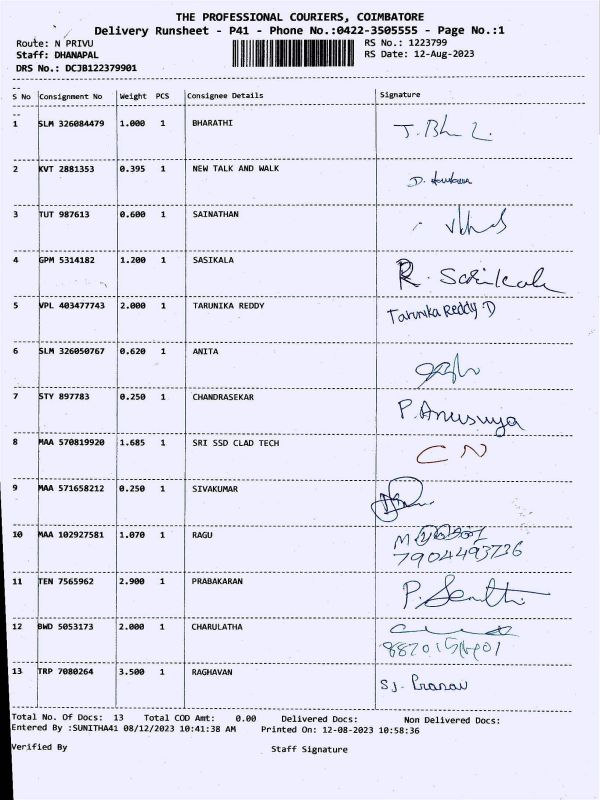 THE PROFESSIONAL COURIERS, COIMBATORE
Delivery Runsheet - P41 - Phone No.:0422-3505555 - Page No.:1
Route: N PRIVU RS No.: 1223799
Staff: DHANAPAL RS Date: 12-Aug-2023
DRS No.: DCJB122379901
S No Consignment No Weight PCS Consignee Details Signature
1 SLM 326084479 1.000 1 BHARATHI
2 KVT 2881353 0.395 1 NEW TALK AND WALK
3 TUT 987613 0.600 1 SAINATHAN
4 GPM 5314182 1.200 1 SASIKALA R. Sasikala
5 VPL 403477743 2.000 1 TARUNIKA REDDY Tarunika Reddy D
6 SLM 326050767 0.620 1 ANITA
7 STY 897783 0.250 1 CHANDRASEKAR P. Anusuya
8 MAA 570819920 1.685 1 SRI SSD CLAD TECH CN
9 MAA 571658212 0.250 1 SIVAKUMAR
10 MAA 102927581 1.070 1 RAGU
7904493736
11 TEN 7565962 2.900 1 PRABAKARAN
12 BWD 5053173 2.000 1 CHARULATHA
13 TRP 7080264 3.500 1 RAGHAVAN SJ. Pranav
Total No. Of Docs: 13 Total COD Amt: 0.00 Delivered Docs: Non Delivered Docs:
Entered By :SUNITHA41 08/12/2023 10:41:38 AM Printed On: 12-08-2023 10:58:36
Verified By Staff Signature